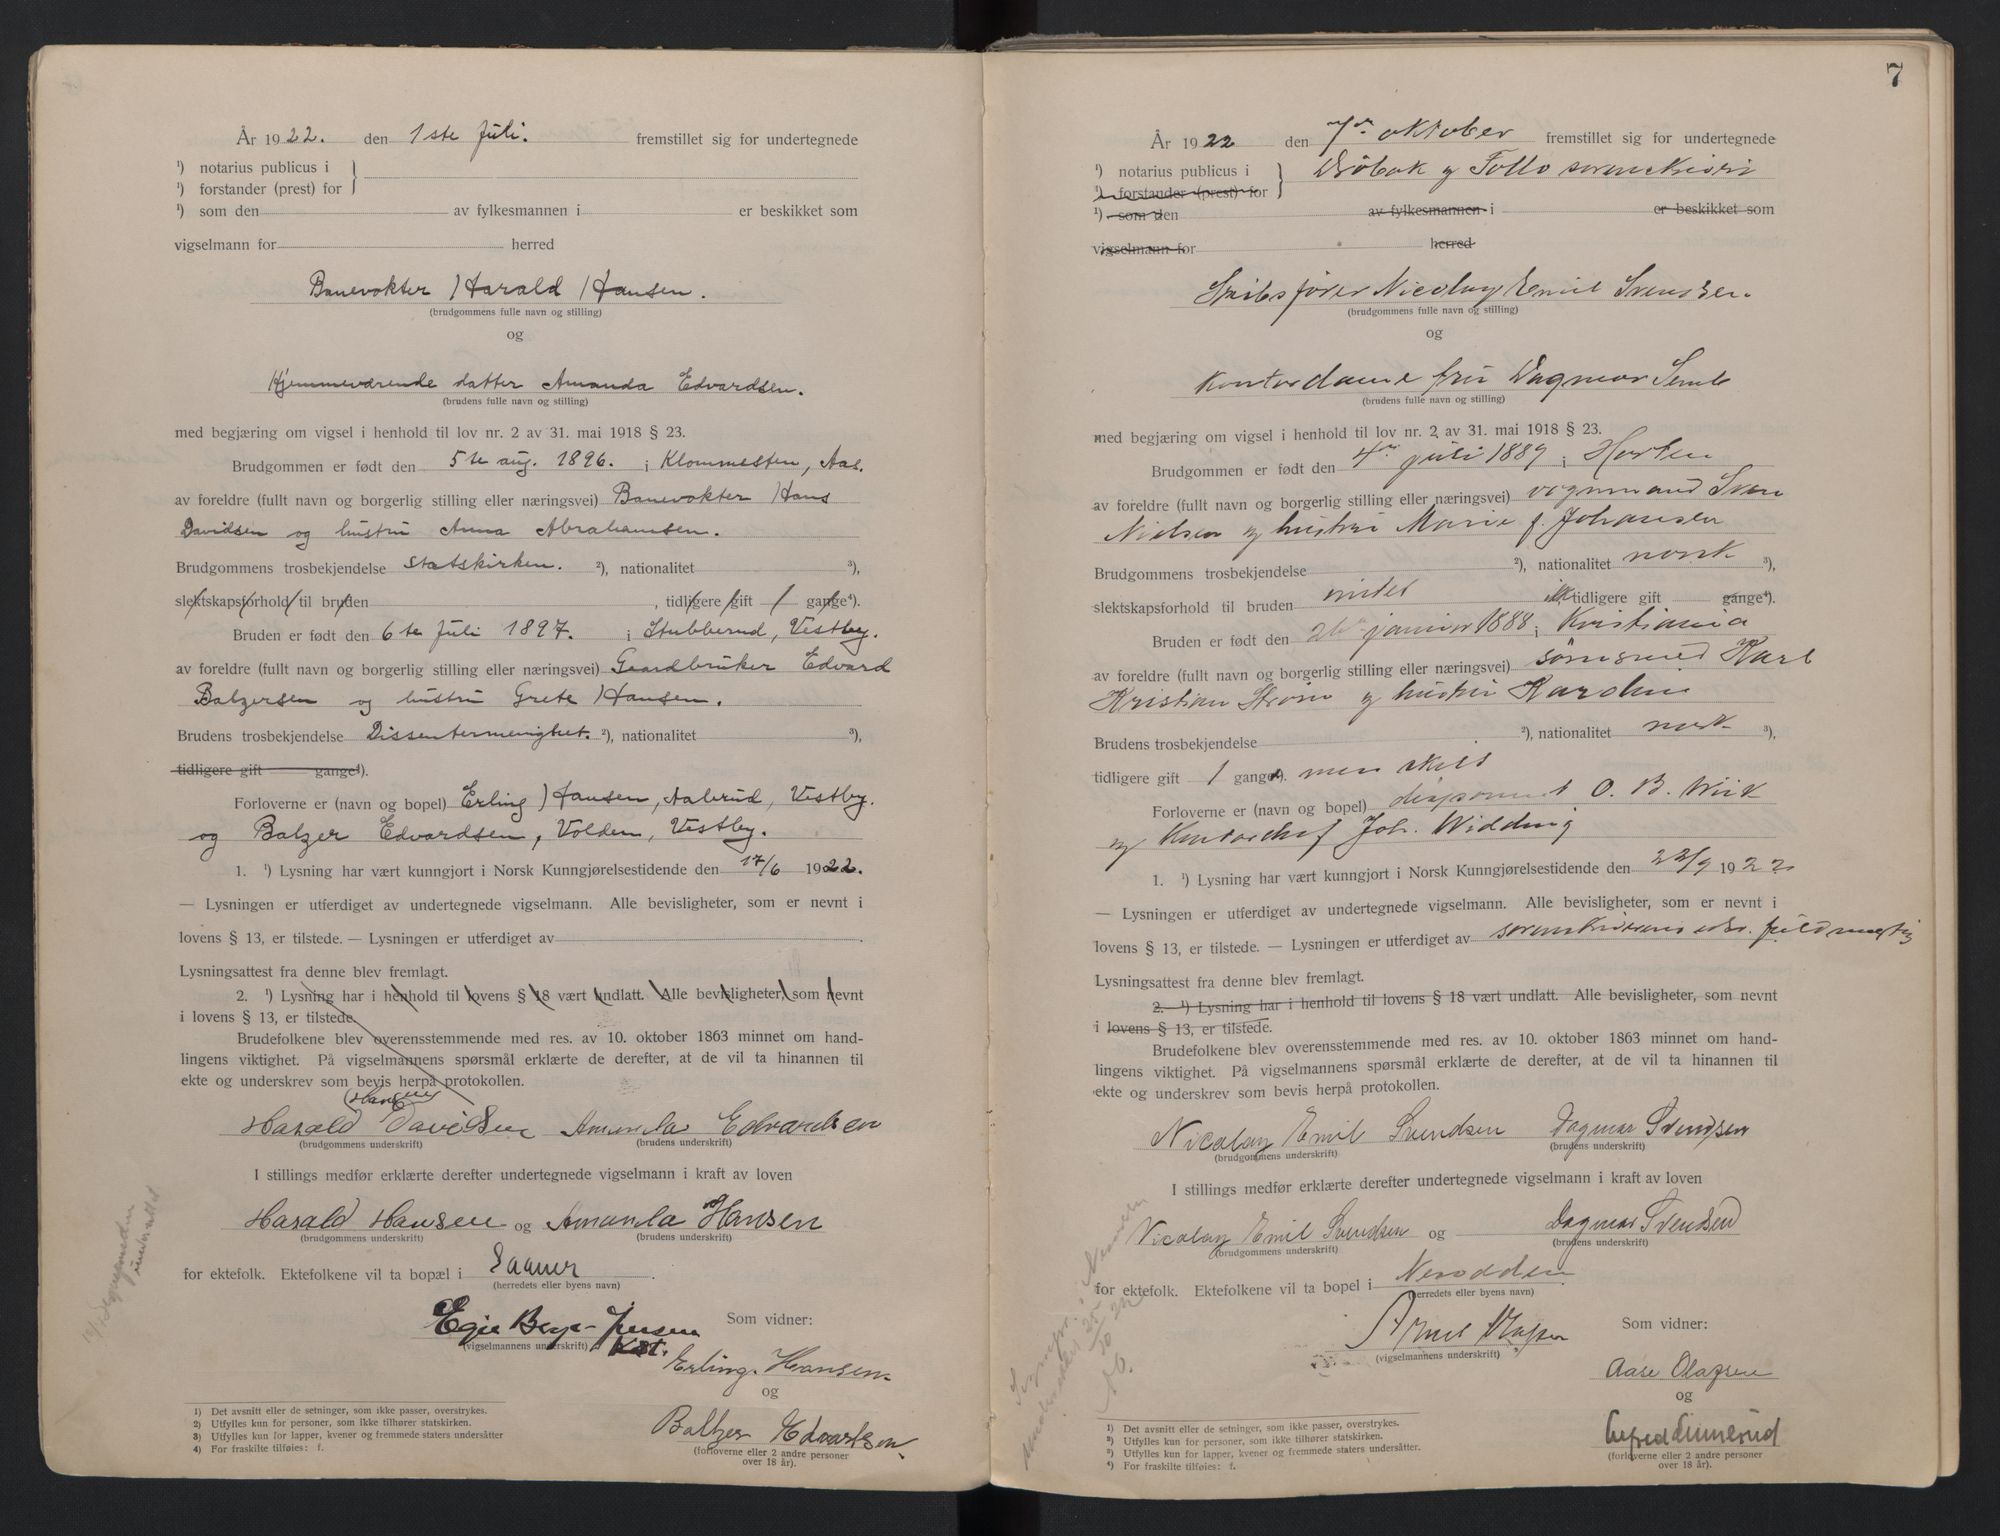 År 1922. den 1ste Juli. fremstillet sig for undertegnede
¹) notarius publicus i
¹) forstander (prest) for
¹) som den av fylkesmannen i er beskikket som
vigselmann for herred
Banevokter Harald Hansen.
(brudgommens fulle navn og stilling)
og
Hjemmeværende datter Amanda Edvardsen.
(brudens fulle navn og stilling)
med begjæring om vigsel i henhold til lov nr. 2 av 31. mai 1918 § 23.
Brudgommen er født den 5te aug. 1896. i Klommesten, Aas.
av foreldre (fullt navn og borgerlig stilling eller næringsvei) Banevokter Hans
Davidsen og hustru Anna Abrahamsen.
Brudgommens trosbekjendelse Statskirken. ²), nationalitet ³),
slektskapsforhold til bruden , tidligere gift gange⁴).
Bruden er født den 6te Juli 1897. i Stubberud, Vestby.
av foreldre (fullt navn og borgerlig stilling eller næringsvei) Gaardbruker Edvard
Balzersen og hustru Grete Hansen.
Brudens trosbekjendelse Dissentermenighet. ²), nationalitet ³),
tidligere gift gange⁴).
Forloverne er (navn og bopel) Erling Hansen, Aalerud, Vestby.
og Balzer Edvardsen, Volden, Vestby.
1. ¹) Lysning har vært kunngjort i Norsk Kunngjørelsestidende den 17/6 1922.
— Lysningen er utferdiget av undertegnede vigselmann. Alle bevisligheter, som er nevnt i
lovens § 13, er tilstede. — Lysningen er utferdiget av .
Lysningsattest fra denne blev fremlagt.
2. ¹) Lysning har i henhold til lovens § 18 vært undlatt. Alle bevisligheter, som nevnt
i lovens § 13, er tilstede.
Brudefolkene blev overensstemmende med res. av 10. oktober 1863 minnet om hand-
lingens viktighet. På vigselmannens spørsmål erklærte de derefter, at de vil ta hinannen til
ekte og underskrev som bevis herpå protokollen.
(Hansen)
Harald Davidsen Amanda Edvardsen
(brudgommens underskrift) (brudens underskrift)
I stillings medfør erklærte derefter undertegnede vigselmann i kraft av loven
Harald Hansen og Amanda Hansen
(brudgommens underskrift) (brudens underskrift)
for ektefolk. Ektefolkene vil ta bopæl i Saaner.
(herredets eller byens navn)
Som vidner:
(vigselmannens underskrift) Kst.
Erling. Hansen.
og
Baltzer Edvartsen.
(forloverne eller 2 andre personer
over 18 år).
1) Det avsnitt eller de setninger, som ikke passer, overstrykes.
2) Utfylles kun for personer, som ikke tilhører statskirken.
3) Utfylles kun for lapper, kvener og fremmede staters undersåtter
4) For fraskilte tilføies: f.
7
År 1922 den 7de oktober fremstillet sig for undertegnede
¹) notarius publicus i Drøbak og Follo sorenskriveri
¹) forstander (prest) for
¹) som den av fylkesmannen i er beskikket som
vigselmann for herred
Skibsfører Nicolay Emil Svendsen.
(brudgommens fulle navn og stilling)
og
Kontordame fru Dagmar Semb
(brudens fulle navn og stilling)
med begjæring om vigsel i henhold til lov nr. 2 av 31. mai 1918 § 23.
Brudgommen er født den 4de juli 1889 i Horten
av foreldre (fullt navn og borgerlig stilling eller næringsvei) vognmand Sven
Nielsen og hustru Marie f. Johansen
Brudgommens trosbekjendelse ²), nationalitet norsk ³),
slektskapsforhold til bruden intet ikke tidligere gift gange⁴).
Bruden er født den januar 1888 i Kristiania
av foreldre (fullt navn og borgerlig stilling eller næringsvei) Karl
Kristian Strøm og hustru
Brudens trosbekjendelse ²), nationalitet norsk ³),
tidligere gift 1 gange⁴). men skilt
Forloverne er (navn og bopel) disponent O. B. Wiik
og Kontorchef Joh. Widding
1. ¹) Lysning har vært kunngjort i Norsk Kunngjørelsestidende den 22/9 1922
— Lysningen er utferdiget av undertegnede vigselmann. Alle bevisligheter, som er nevnt i
lovens § 13, er tilstede. — Lysningen er utferdiget av sorenskriverens edsv. fuldmægtig
Lysningsattest fra denne blev fremlagt.
2. ¹) Lysning har i henhold til lovens § 18 vært undlatt. Alle bevisligheter, som nevnt
i lovens § 13, er tilstede.
Brudefolkene blev overensstemmende med res. av 10. oktober 1863 minnet om hand-
lingens viktighet. På vigselmannens spørsmål erklærte de derefter, at de vil ta hinannen til
ekte og underskrev som bevis herpå protokollen.
Nicolay Emil Svendsen Dagmar Svendsen
(brudgommens underskrift) (brudens underskrift)
I stillings medfør erklærte derefter undertegnede vigselmann i kraft av loven
Nicolay Emil Svendsen og Dagmar Svendsen
(brudgommens underskrift) (brudens underskrift)
for ektefolk. Ektefolkene vil ta bopel i Nesodden
(herredets eller byens navn)
Som vidner:
(vigselmannens underskrift)
Aase Olafsen
og
(forloverne eller 2 andre personer
over 18 år).
1) Det avsnitt eller de setninger, som ikke passer, overstrykes.
2) Utfylles kun for personer, som ikke tilhører statskirken.
3) Utfylles kun for lapper, kvener og fremmede staters undersåtter.
4) For fraskilte tilføies: f.